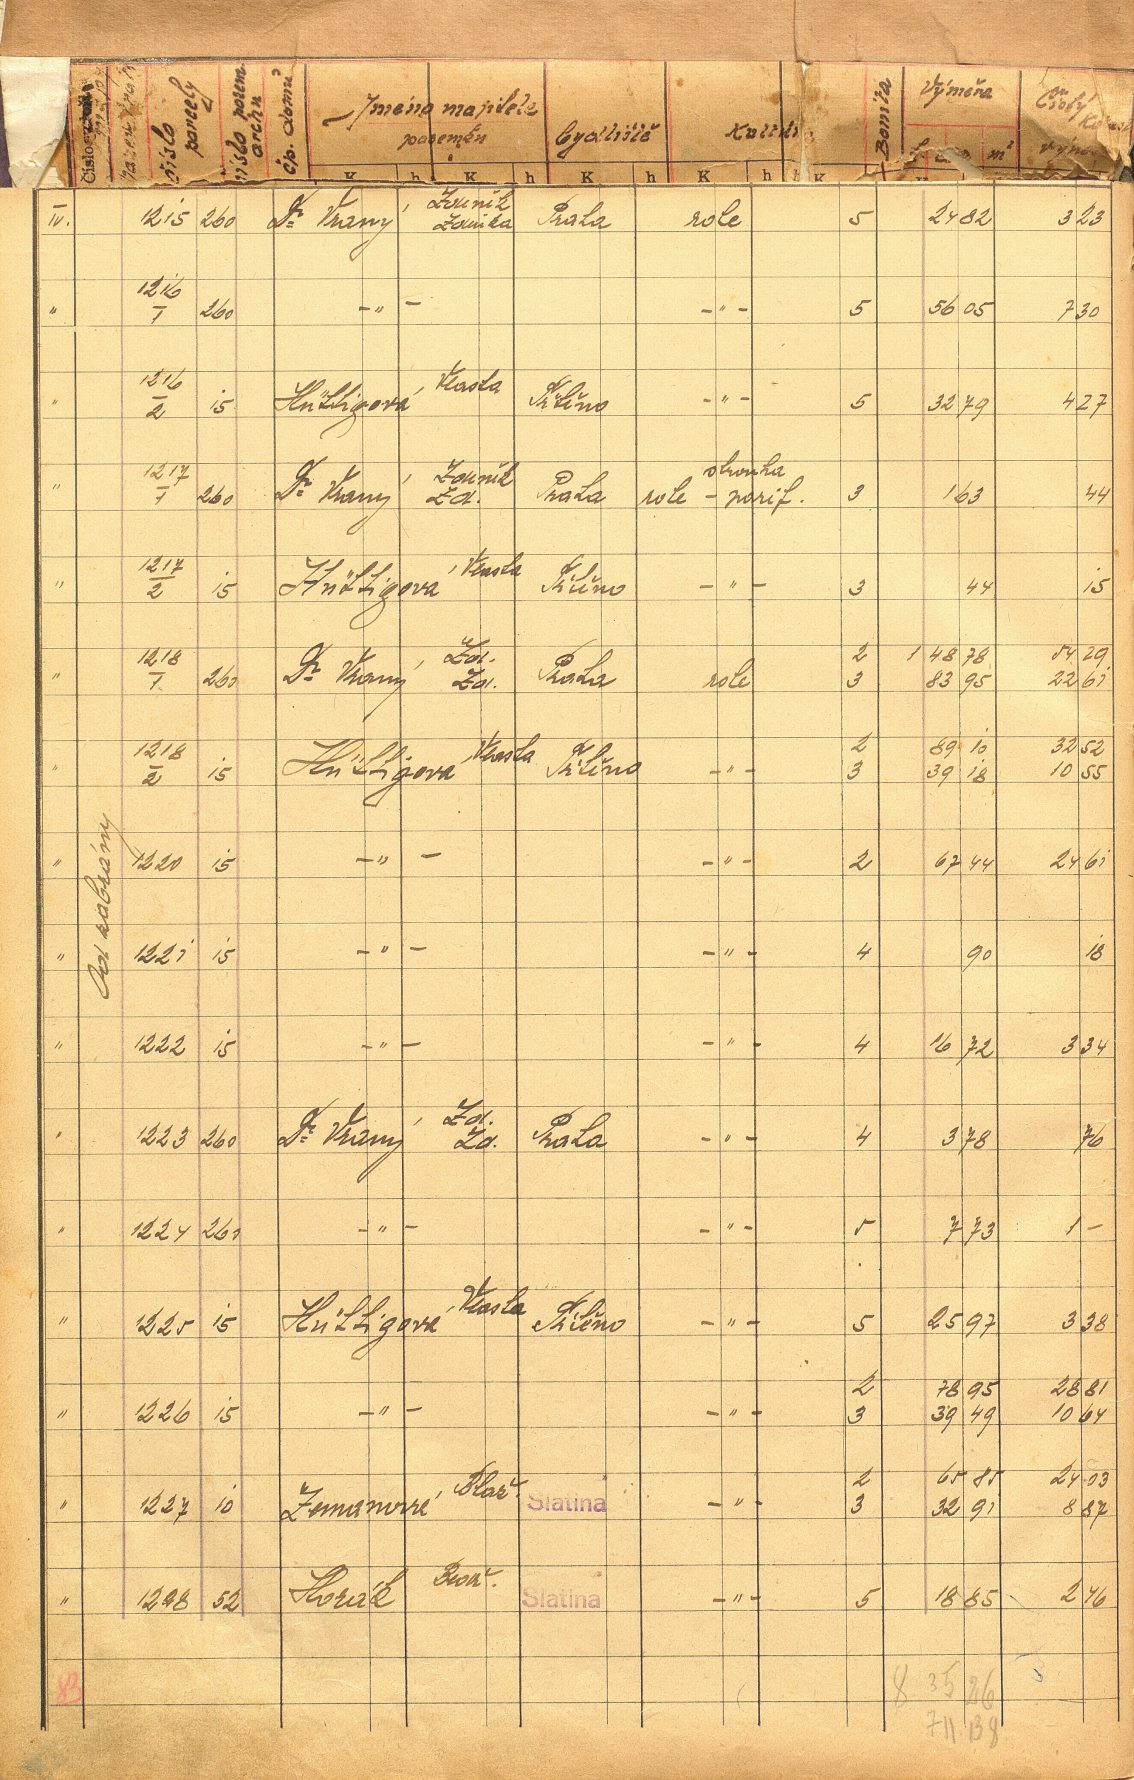 číslo parcely
číslo pozem. archu
čp. domu
Jméno majitele pozemku
Bydliště
Kultura
Bonita
Výměra
Čistý
m²
K h K h K h K h K
IV. 1215 260 Dr Vraný, Zdeněk Zdeňka Praha role 5 24 82 3 23
" 1216/1 260 -"- -"- 5 56 05 7 30
" 1216/2 15 Hüttigová, Vlasta -"- 5 32 79 4 27
" 1217/1 260 Dr Vraný, Zdeněk Zd. Praha role - 3 1 63 44
" 1217/2 15 Hüttigová, Vlasta -"- 3 44 15
" 1218/1 260 Dr Vraný, Zd. Zd. Praha role 2 1 48 78 54 29
3 83 95 22 61
" 1218/2 15 Hüttigová, Vlasta -"- 2 89 10 32 52
3 39 18 10 55
" 1220 15 -"- -"- 2 67 44 24 61
" 1221 15 -"- -"- 4 90 18
" 1222 15 -"- -"- 4 16 72 3 34
" 1223 260 Dr Vraný, Zd. Zd. Praha -"- 4 3 78 76
" 1224 260 -"- -"- 5 7 73 1 -
" 1225 15 Hüttigová, Vlasta -"- 5 25 97 3 38
" 1226 15 -"- -"- 2 78 95 28 81
3 39 49 10 64
" 1227 10 Slatina -"- 2 65 85 24 03
3 32 91 8 87
" 1228 52 Horák Slatina -"- 5 18 85 2 46
83
8 35 26
7 11 138